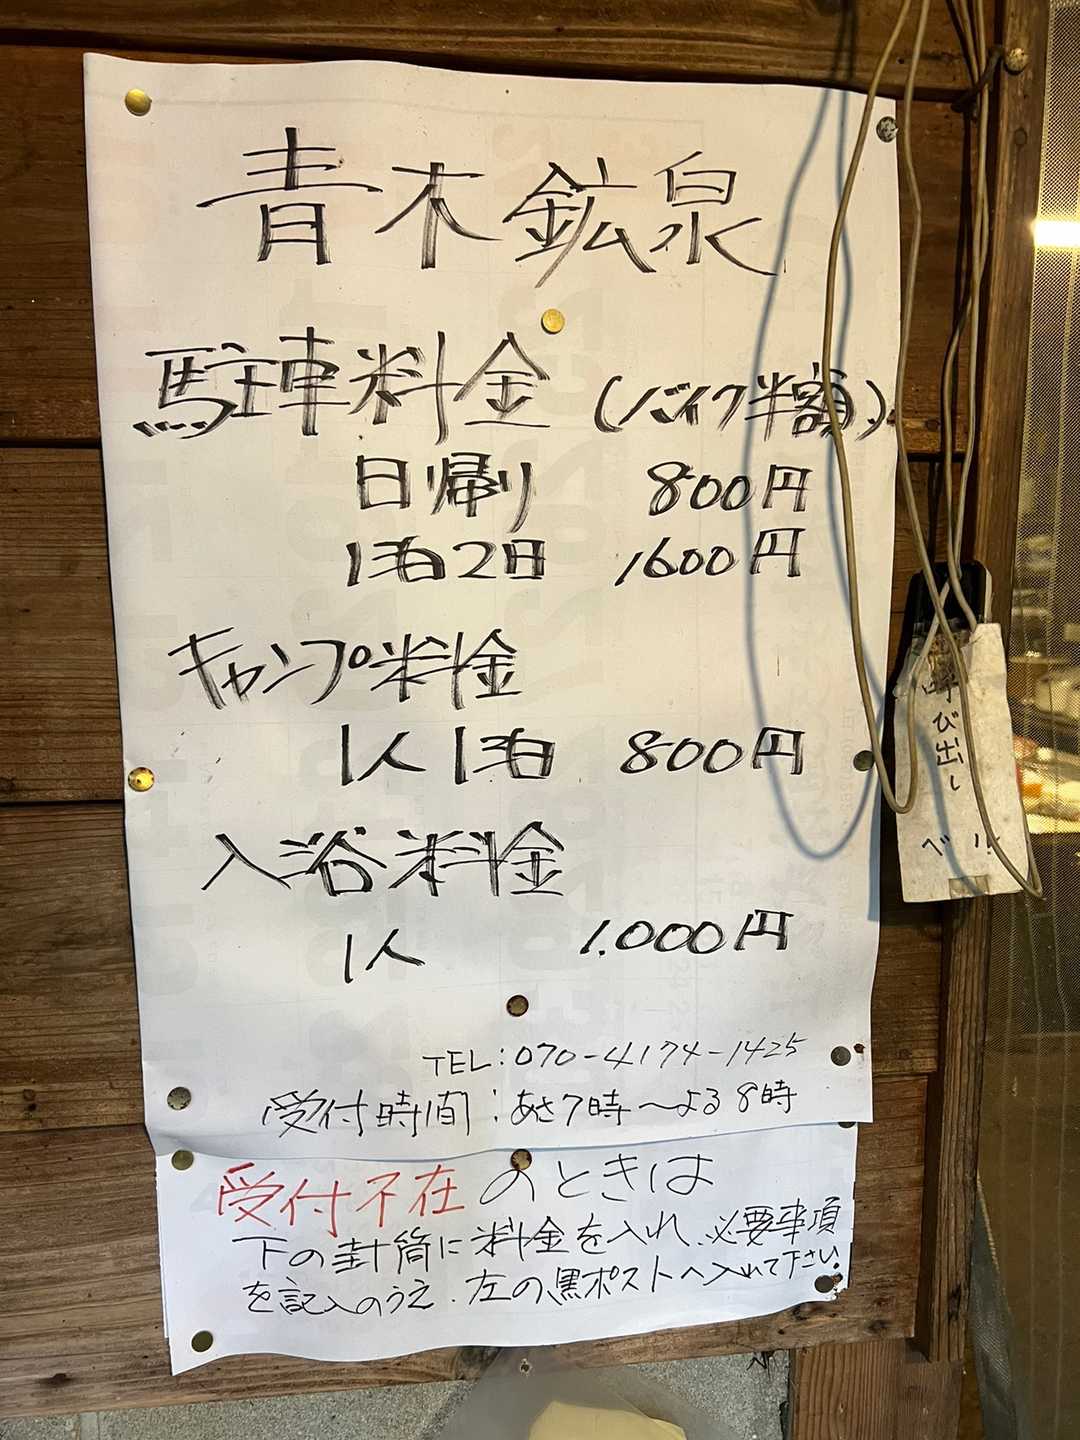 青木鉱泉
駐車料金 (バイク半額)
日帰り 800円
1泊2日 1600円
キャンプ料金
1人1泊 800円
入浴料金
1人 1.000円
TEL:070-4174-1425
受付時間:あさ7時〜よる8時
受付不在のときは
下の封筒に料金を入れ、必要事項
を記入のうえ、左の黒ポストへ入れて下さい
呼び出し
ベル